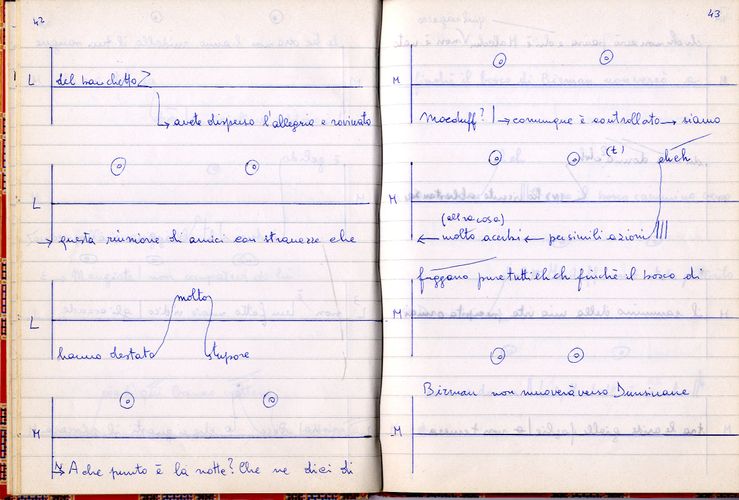 42
L del banchetto
avete disperso l'allegria e rovinato
L
questa riunione di amici con stranezze che
molto
L
hanno destato stupore
M
A che punto è la notte? Che ne dici di
43
M
Macduff? comunque è controllato siamo
(t) eh eh
M
(altra cosa)
molto acerbi per simili azioni
fuggano pure tutti eh eh finchè il bosco di
M
Birnan non muoverà verso Dunsinane
M